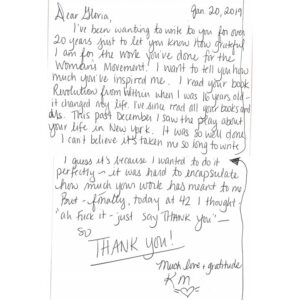 Jan. 20, 2019
Dear Gloria,
I've been wanting to write to you for over
20 years just to let you know how grateful
I am for the work you've done for the
Woman's Movement. I want to tell you how
much you've inspired me. I read your book
Revolution from Within when I was 16 years old -
it changed my life. I've since read all your books and
This past December I saw the play about
your life in New York. It was so well done.
I can't believe it's taken me so long to write
I guess it's because I wanted to do it
perfectly - it was hard to encapsulate
how much your work has meant to me
But - finally, today at 42 I thought
"ah fuck it - just say THANK YOU" -
so
THANK YOU!
Much love + gratitude
KM